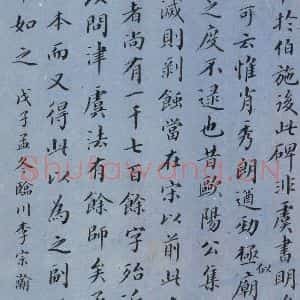 於伯施此碑非虞書明
可云惟肖秀朗遒勁極似廟
之度不逮也昔歐陽公集
滅則剥蝕當在宗以前此
者尚有一千七百餘字殆
問津虞法有餘師矣
本而又得此以為之副
如之 戊子孟冬臨川李宗瀚
Shufawang.CN